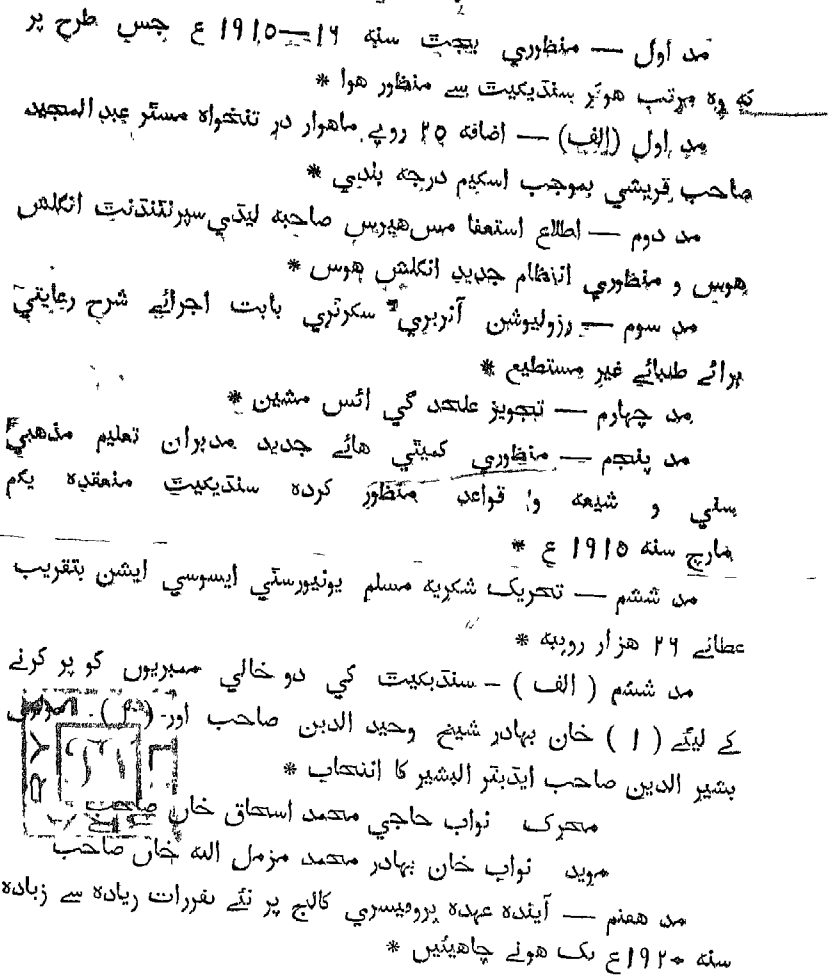 مد اول — منظوري بجت سنه ١٦—١٩١٥ ع جس طرح پر
که وه مرتب هوکر سنڈیکیٹ سے منظور هوا *
مد اول (الف) — اضافه ٢٥ روپے ماهوار در تنخواه مسٹر عبد المجید
صاحب قریشي بموجب اسکیم درجه بندي *
مد دوم — اطلاع استعفا مس هیرس صاحبه لیڈي سپرنٹنڈنٹ انگلش
هوس و منظوري انتظام جدید انگلش هوس *
مد سوم — رزولیوشن آنریري سکرٹري بابت اجرائے شرح رعایتي
برائے طلبائے غیر مستطیع *
مد چهارم — تجویز علحدگي ائس مشین *
مد پنجم — منظوري کمیٹي هائے جدید مدبران تعلیم مذهبي
سني و شیعه و قواعد منظور کرده سنڈیکیٹ منعقده یکم
مارچ سنه ١٩١٥ ع *
مد ششم — تحریک شکریه مسلم یونیورسٹي ایسوسي ایشن بتقریب
عطائے ٢٦ هزار روپیه *
مد ششم ( الف ) — سنڈیکیٹ کي دو خالي ممبریوں کو پر کرنے
کے لیئے ( ١ ) خان بهادر شیخ وحید الدین صاحب اور (٢) مولوي
بشیر الدین صاحب ایڈیٹر البشیر کا انتخاب *
محرک نواب حاجي محمد اسحاق خاں صاحب
موید نواب خان بهادر محمد مزمل الله خاں صاحب
مد هفتم — آینده عهده پروفیسري کالج پر نئے تقررات زیاده سے زیاده
سنه ١٩٢٠ع تک هونے چاهیئیں *